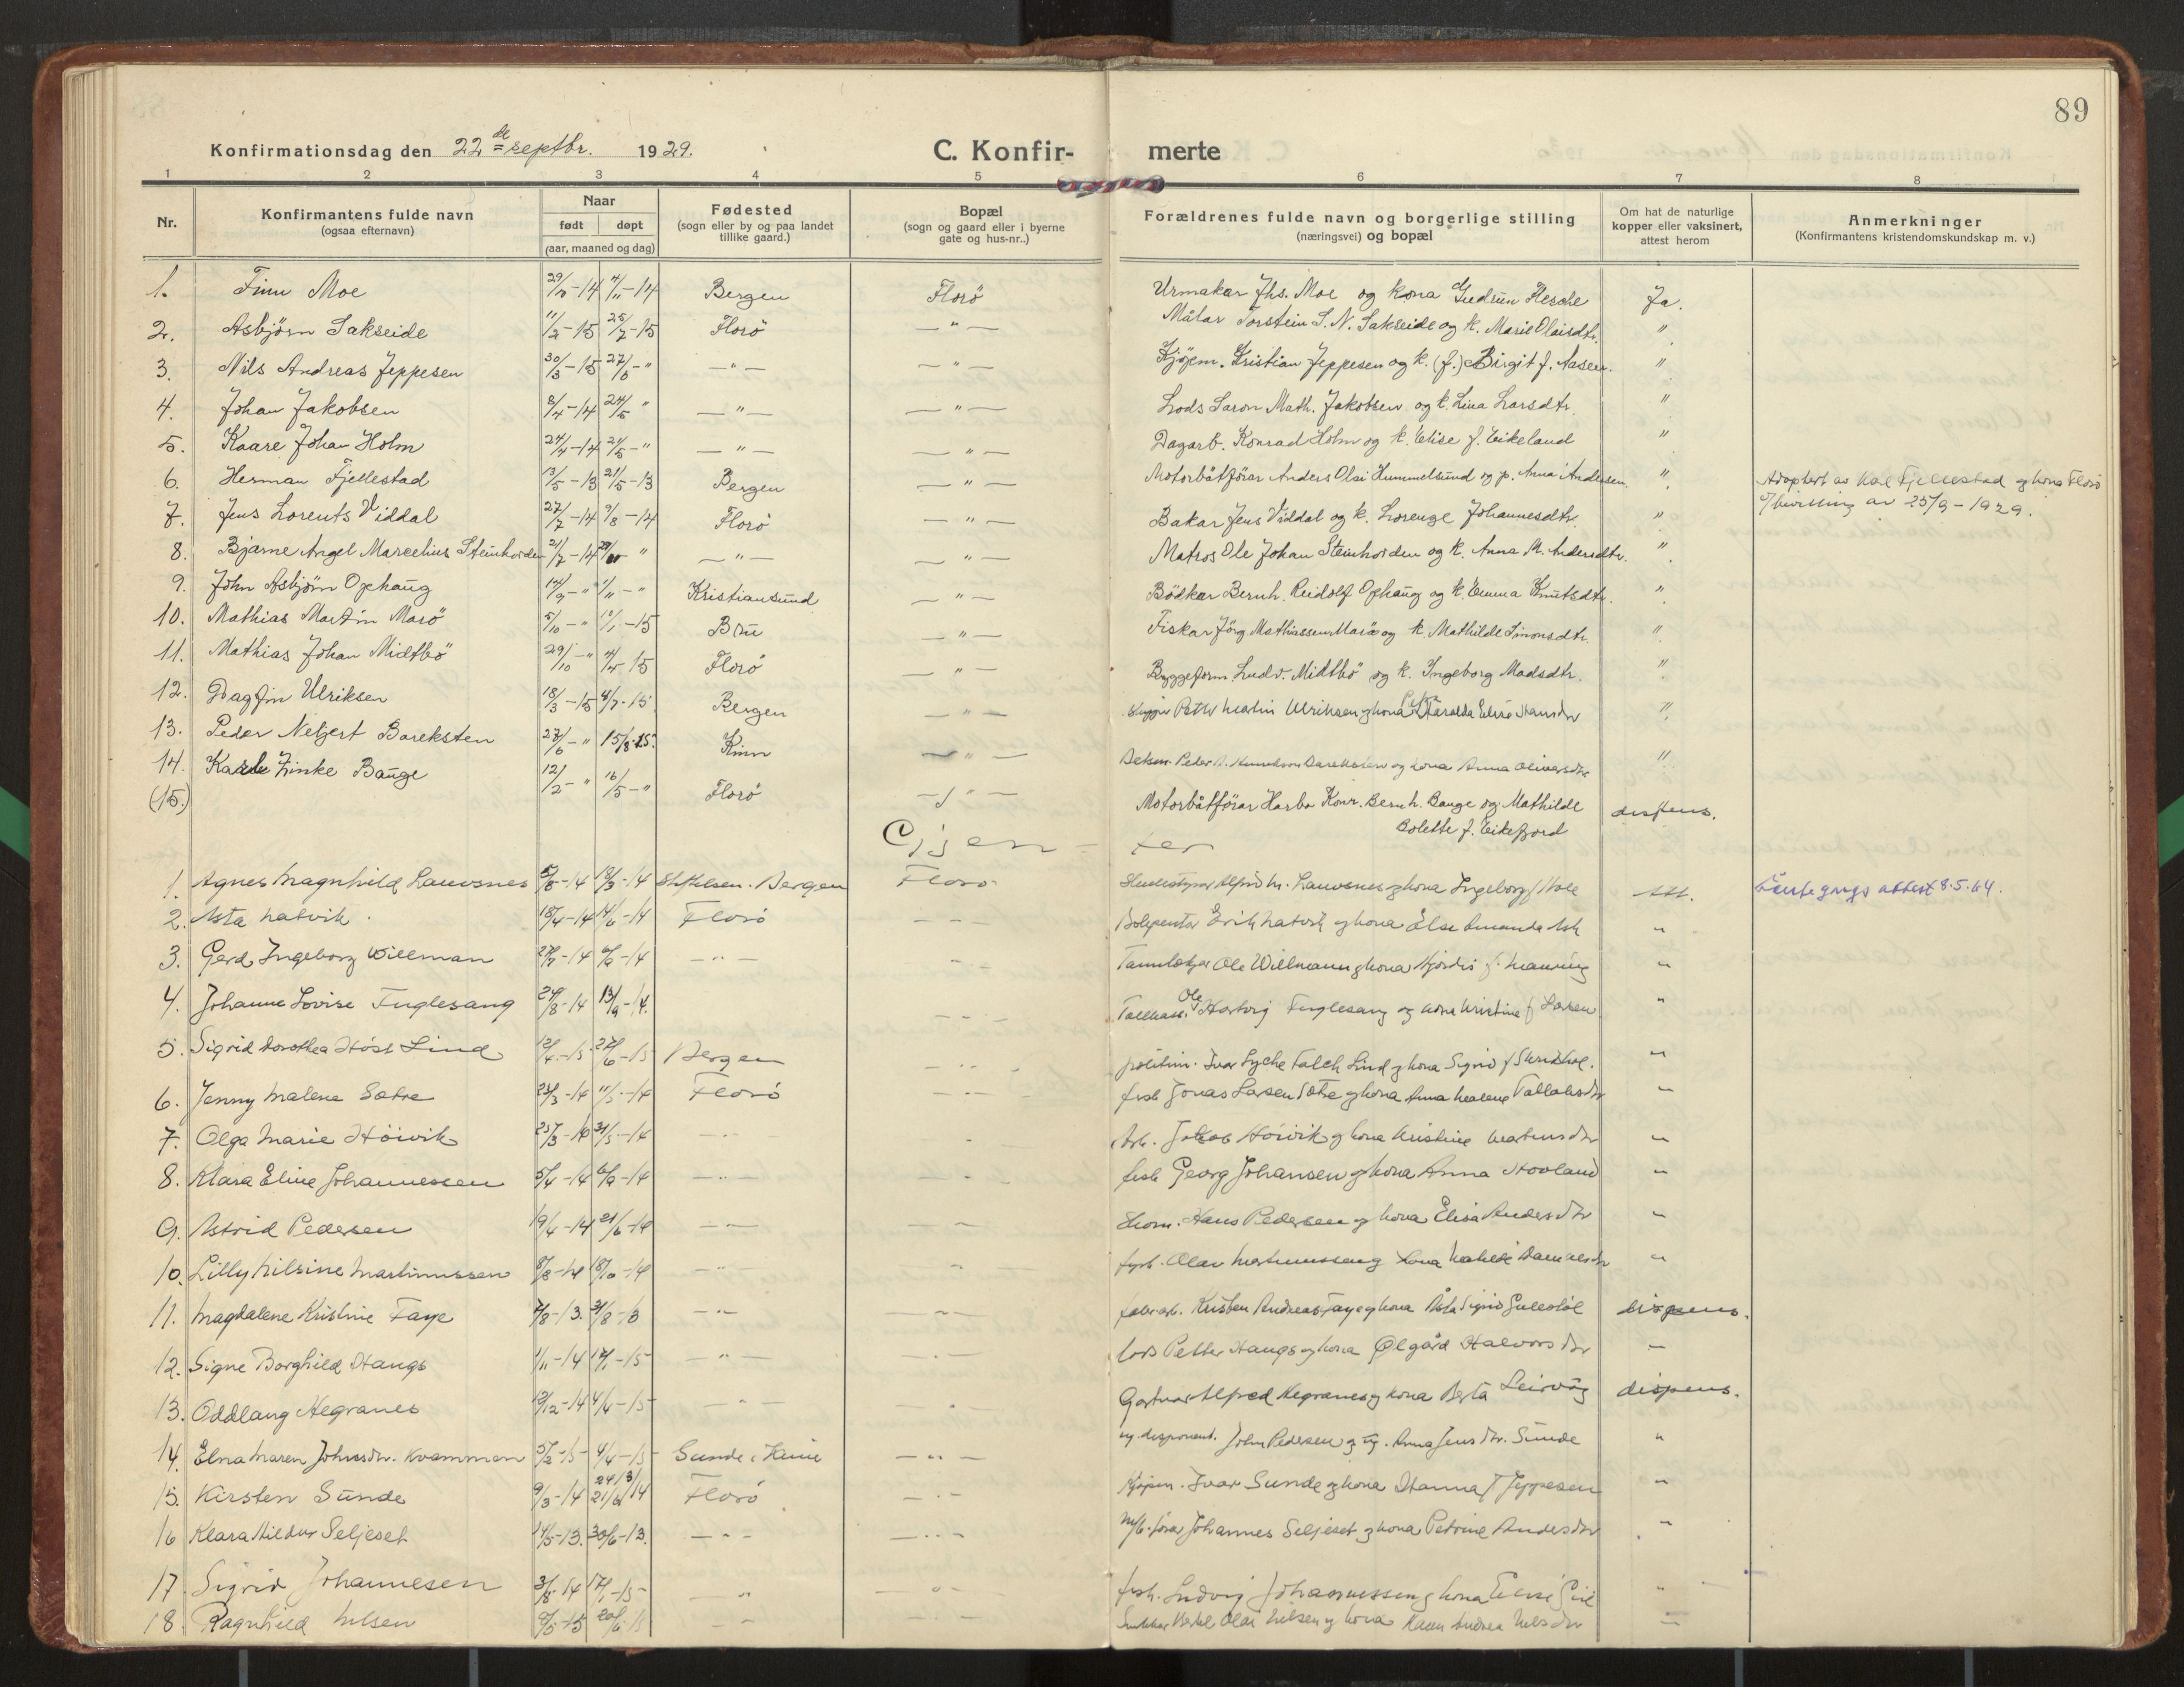 89
Konfirmationsdag den 22 de septbr. 1929.
C. Konfir- merte
1 2 3 4 5 6 7 8
Nr.
Konfirmantens fulde navn
(ogsaa efternavn)
Naar
født døpt
(aar, maaned og dag)
Fødested
(sogn eller by og paa landet
tillike gaard.)
Bopæl
(sogn og gaard eller i byerne
gate og hus-nr..)
Forældrenes fulde navn og borgerlige stilling
(næringsvei) og bopæl
Om hat de naturlige
kopper eller vaksinert,
attest herom
Anmerkninger
(Konfirmantens kristendomskundskap m. v.)
1. Finn Moe 29/10-14 -14 Bergen Florö Urmakar Jhs. Moe og kona Gudrun Hesche Ja.
2. Asbjörn Sakseide -15 25/7-15 Florö —"— Målar Torstein S. N. Sakseide og k. Marie Olaisdtr. "
3. Nils Andreas Jeppesen 30/3-15 27/6-" —"— —"— Kjøpm. Kristian Jeppesen og k. (f.) Birgit f. Aasen. "
4. Johan Jakobsen 8/4-14 24/5 " —"— —"— Lods Saron Math. Jakobsen og k. Lina Larsdtr. "
5. Kaare Johan Holm 24/4-14 21/5-" —"— —"— Dagarb. Konrad Holm og k. Elise f. Eikeland "
6. Herman Fjellestad 13/5-13 21/5-13 Bergen —"— Motorbåtförar Anders Olai Hummelsund og p. Anna Andersen. " Adoptert av Fjellestad og kona Florö
av 25/9-1929.
7. Jens Lorents Viddal 27/7-14 9/8-14 Florö —"— Bakar Jens Viddal og k. Lorenze Johannesdtr. "
8. Bjarne Angel Marcelius Steinhovden 21/7-14 " —"— —"— Matros Ole Johan Steinhovden og k. Anna M. Andersdtr. "
9. John Asbjörn Ophaug 14/9-" 1/11-" Kristiansund —"— Bödkar Bernh. Reidolf Ophaug og k. Emma Knutsdtr. "
10. Mathias Martin Marö 5/10-" 10/1-15 Bru —"— Fiskar Jörg Mathiassen Marö og k. Mathilde Simonsdtr. "
11. Mathias Johan Midtbö 29/10-" 4/4-15 Florö —"— Byggeform. Ludv. Midtbö og k. Ingeborg Madsdtr. "
12. Dagfin Ulriksen 18/3-15 4/7-15 Bergen —"— Petter Martin Ulriksen og kona "
13. Peder Neljert Bareksten 27/6-" 15/8-15. Kinn —"— Peder Bareksten og kona Anna Oliversdtr "
14. Kaarle Zinke Bauge 12/2-" 16/5-" Florö —"— Motorbåtförar Harbo Konr. Bernh. Bauge og Mathilde dispens.
(15.) Bolette f. Eikefjord
Gjen- ter
1. Agnes Magnhild Lauvsnes 5/8-14 -14 Bergen Florö Alfred M. Lauvsnes og kona Ingeborg att. attest 8.5.64.
2. Asta Natvik. 18/4-14 14/6-14 Florö Erik Natvik og kona Else Amanda Ask "
3. Gerd Ingeborg Willman -14 6/9-14 —"— Ole Willmann og kona Hjördis "
4. Johanne Lovise Fuglesang 24/8-14 13/9-14. Ole Hartvig Fuglesang og kona Kristine f Larsen "
5. Sigrid Dorothea Höst Lind 12/4-15 27/6-15 Bergen Ivar Lyche Falch Lind og kona Sigrid "
6. Jenny Malene Sætre 23/3-14 -14 Florö fisk. Jonas Larsen Sætre og kona Anna Malene "
7. Olga Marie Höivik 25/3-14 31/5-14 —"— Arb. Jakob Höivik og kona Kristine Martinsdtr "
8. Klara Eline Johannessen 5/4-14 6/9-14 —"— fisk Georg Johansen og kona Anna Hovland "
9. Astrid Pedersen 19/4-14 21/6-14 —"— Hans Pedersen og kona Elisa Andersdtr "
10. Lilly Nilsine Martinussen -14 18/10-14 —"— Olav Martinussen og kona "
11. Magdalene Kristine Faye 7/8-13. 31/8-13 —"— —"— Kristian Andreas Faye og kona Asta Sigrid dispens.
12. Signe Borghild Haugs 1/11-14 17/1-15 —"— —"— lods Petter Haugs og kona Olgård Halvorsdtr
13. Oddlaug Hegranes 12/12-14 4/4-15 —"— Gartnar Alfred Hegranes og kona Berta Leirvåg dispens.
14. Elna Maren Johnsdtr. Kvammen 5/2-15 4/4-15 Sunde i Kinn —"— ug. disponent. John Pedersen og ug. Anna Jensdtr. Sunde "
15. Kirsten Sunde 9/3-14 14 Florö —"— Kjøpm. Ivar Sunde og kona Hanna f Jeppesen "
16 Klara Hildur Seljeset 14/5-13. 30/6-13. —"— —"— m/b.förar Johannes Seljeset og kona Petrine Andersdtr "
17. Sigrid Johannesen -14 17/1-15 " —"— fisk. Ludvig Johannessen og kona Elise "
18. Ragnhild Nilsen -15 20/6-15 Olai Nilsen og kona Karen Andrea Nilsdtr